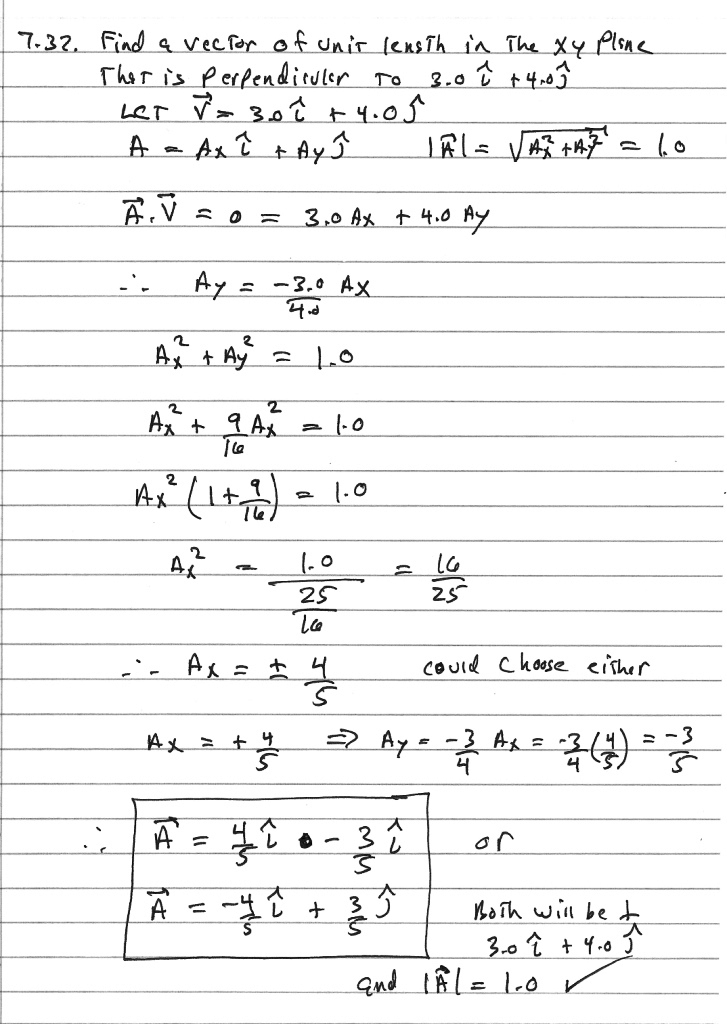 7.32. Find a vector of unit length in the xy plane
That is perpendicular to 3.0 î + 4.0 ĵ
Let V⃗ = 3.0 î + 4.0 ĵ
A = Ax î + Ay ĵ |A⃗| = √(Ax² + Ay²) = 1.0
A⃗ . V⃗ = 0 = 3.0 Ax + 4.0 Ay
∴ Ay = -3.0/4.0 Ax
Ax² + Ay² = 1.0
Ax² + 9/16 Ax² = 1.0
Ax² (1 + 9/16) = 1.0
Ax² = 1.0/(25/16) = 16/25
∴ Ax = ± 4/5 could choose either
Ax = + 4/5 ⇒ Ay = -3/4 Ax = -3/4 (4/5) = -3/5
∴ A⃗ = 4/5 î - 3/5 î or
A⃗ = -4/5 î + 3/5 ĵ Both will be ⊥
3.0 î + 4.0 ĵ
and |A⃗| = 1.0 ✓